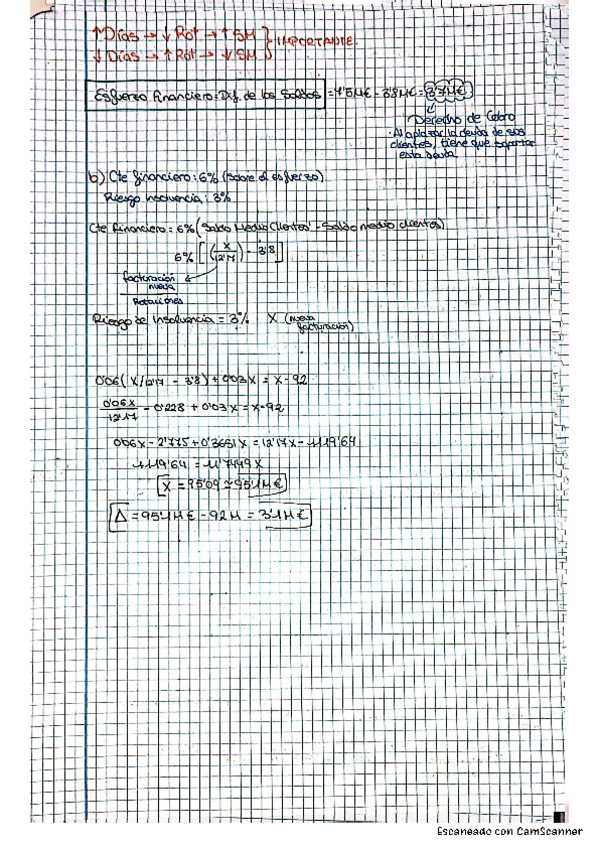 ↑Días → ↓ Rot → ↑ SM } IMPORTANTE.
↓ Días → ↑ Rot → ↓ SM
Esfuerzo Financiero = Dif. de los Saldos = 7'5M€ - 3'8M€ = 3'7M€
Derecho de Cobro
· Al aplazar la deuda de sus
clientes, tiene que soportar
esta deuda
b) Cte financiero: 6% (sobre el esfuerzo)
Riesgo insolvencia: 3%
Cte Financiero = 6% (Saldo Medio Clientes' - Saldo medio clientes)
6% [(X/12'17) - 3'8]
facturación nueva
Rotaciones
Riesgo de Insolvencia = 3% X (nueva
facturación)
0'06(X/12'17 - 3'8) + 0'03X = X-92
0'06X/12'17 - 0'228 + 0'03X = X-92
0'06X - 2'775 + 0'3651X = 12'17X - 1119'64
+1119'64 = 11'7449X
X = 95'09 ≃ 95'1M€
Δ = 95'1M€ - 92M = 3'1M€
Escaneado con CamScanner